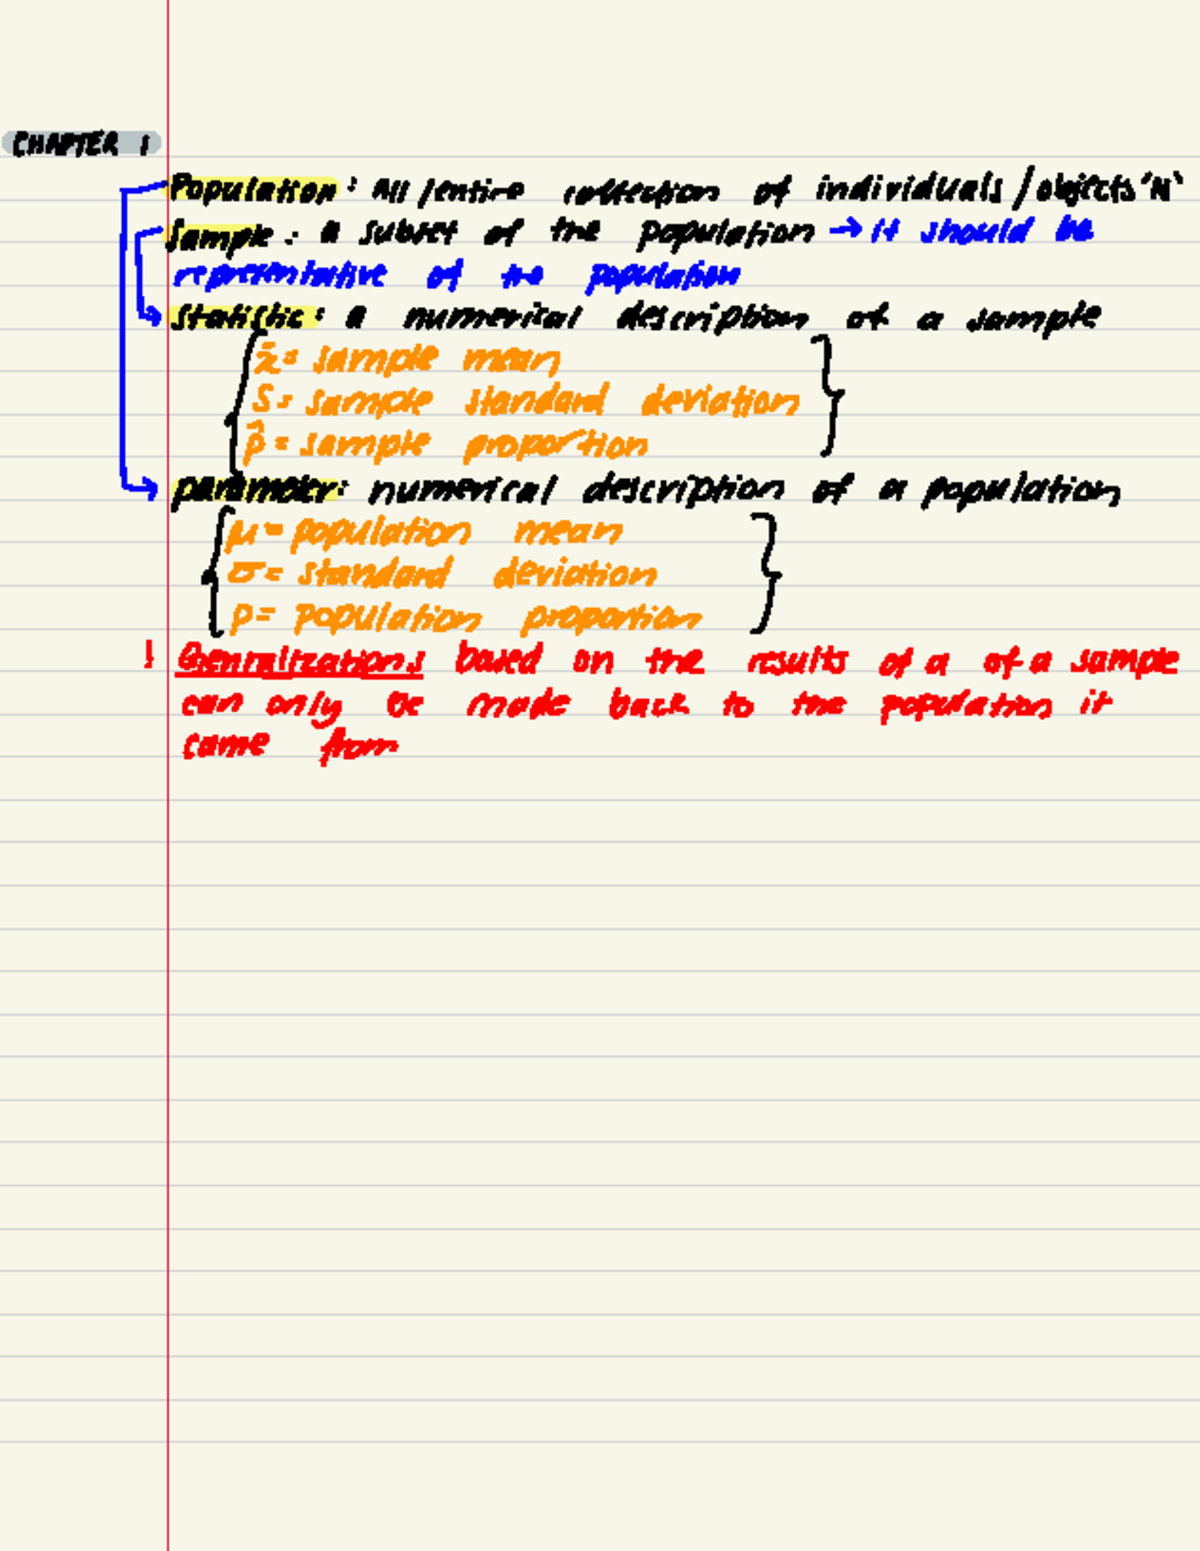 CHAPTER 1
Population: All/entire collection of individuals/objects 'N'
Sample: a subset of the population → it should be
representative of the population
Statistic: a numerical description of a sample
x̄ = sample mean
S = sample standard deviation
p̂ = sample proportion
parameter: numerical description of a population
μ = population mean
σ = standard deviation
p = population proportion
! Genralizations based on the results of a of a sample
can only be made back to the population it
came from